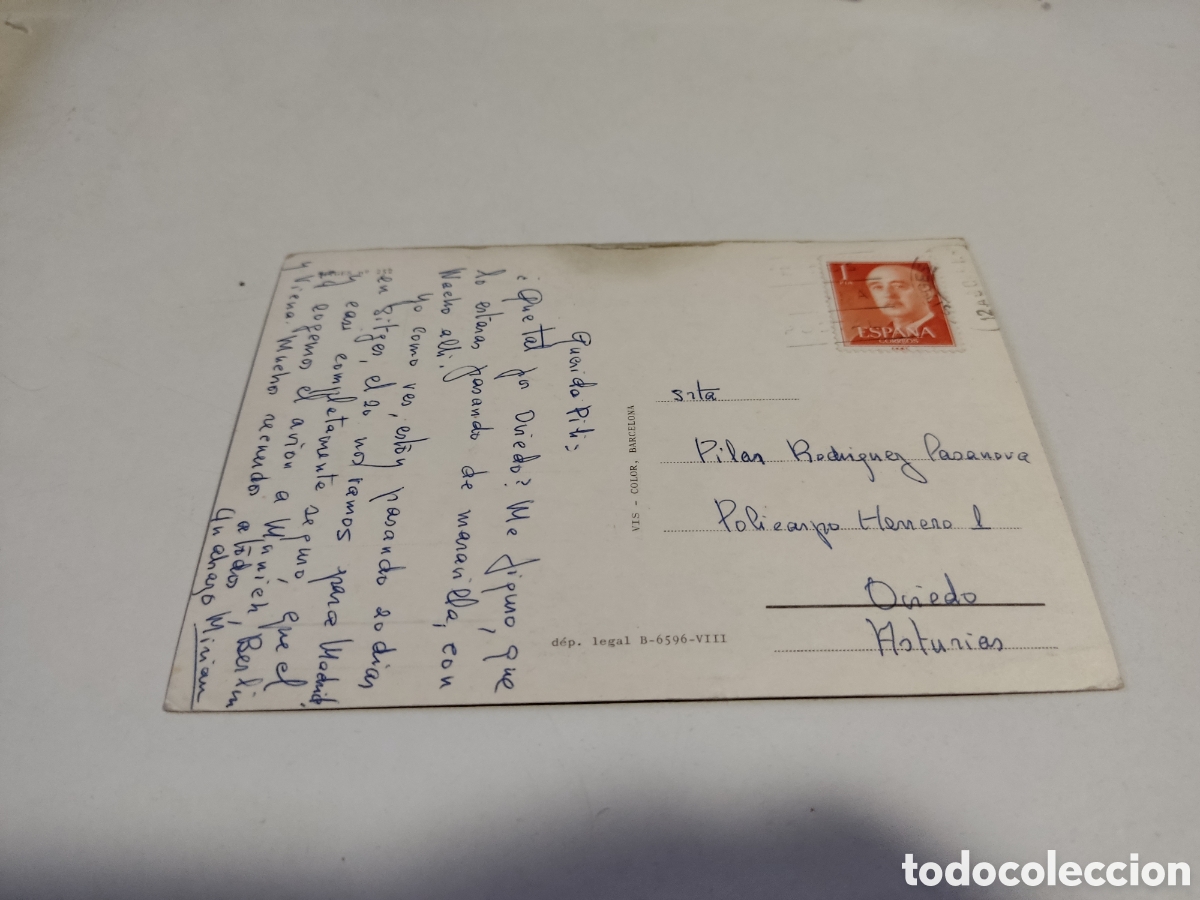 Querida Piti:
¿Que tal por Oviedo? Me figuro, que
lo estaras pasando de maravilla, con
Nacho alli.
Yo como ves, estoy pasando 20 dias
en Sitges, el 20 nos vamos para Madrid
y casi completamente seguro, que el
21 cogemos el avion a Munich, Berlin
y Viena. Mucho recuerdos a todos,
Un abrazo Mirian
VIS - COLOR, BARCELONA
dép. legal B-6596-VIII
1
PTA
ESPAÑA
CORREOS
Srta
Pilar Rodriguez Casanova
Policarpo Herrero 1
Oviedo
Asturias
todocoleccion